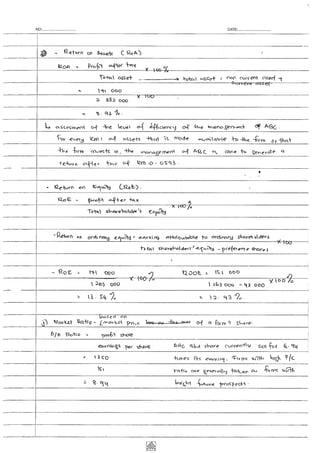 NO: DATE:
- Return on Assets (ROA)
ROA = Profit after tax x 100%
Total asset → total asset : non current asset +
current asset
= 141 000 x 100
2 383 000
= 5.92%
An assessment of the level of efficiency of the management of ABC
For every RM 1 of assets that is made available to the firm or that
the firm invests in, the management of ABC is able to generate a
return after tax of RM 0.0593.
- Return on Equity (ROE).
ROE = profit after tax x 100%
Total shareholder's equity
- Return on ordinary equity = earning attributable to ordinary shareholders x 100
total shareholders' equity - preference shares
- ROE = 141 000 x 100% ROOE = 151 000 x 100%
= 12.43%
j) Market Ratio - based on (market price of a firm's share
P/E Ratio = share
earnings per share ABC Sdn share currently sells for 8.94
= 1350 times its earning. Firms with high P/E
151 ratio are generally taken as firms with
= 8.94 bright future prospects.